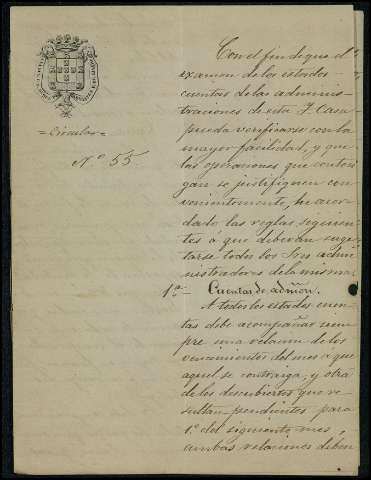 =Circular=
N.º 55.
Con el fin de que el
examen de los estados
cuentas de las adminis-
traciones de esta I. Casa
pueda verificarse con la
mayor facilidad, y que
las operaciones que conten-
gan se justifiquen con-
venientemente, he acor-
dado las reglas siguien-
tes á que deberan suge-
tarse todos los Sres admi-
nistradores de la misma.
1.ª Cuentas de admon.
A todos los estados cuen-
tas debe acompañar siem-
pre una relacion de los
vencimientos del mes á que
aquel se contraiga, y otra
de los descubiertos que re-
sultan pendientes para
1.º del siguiente mes,
ambas relaciones deben